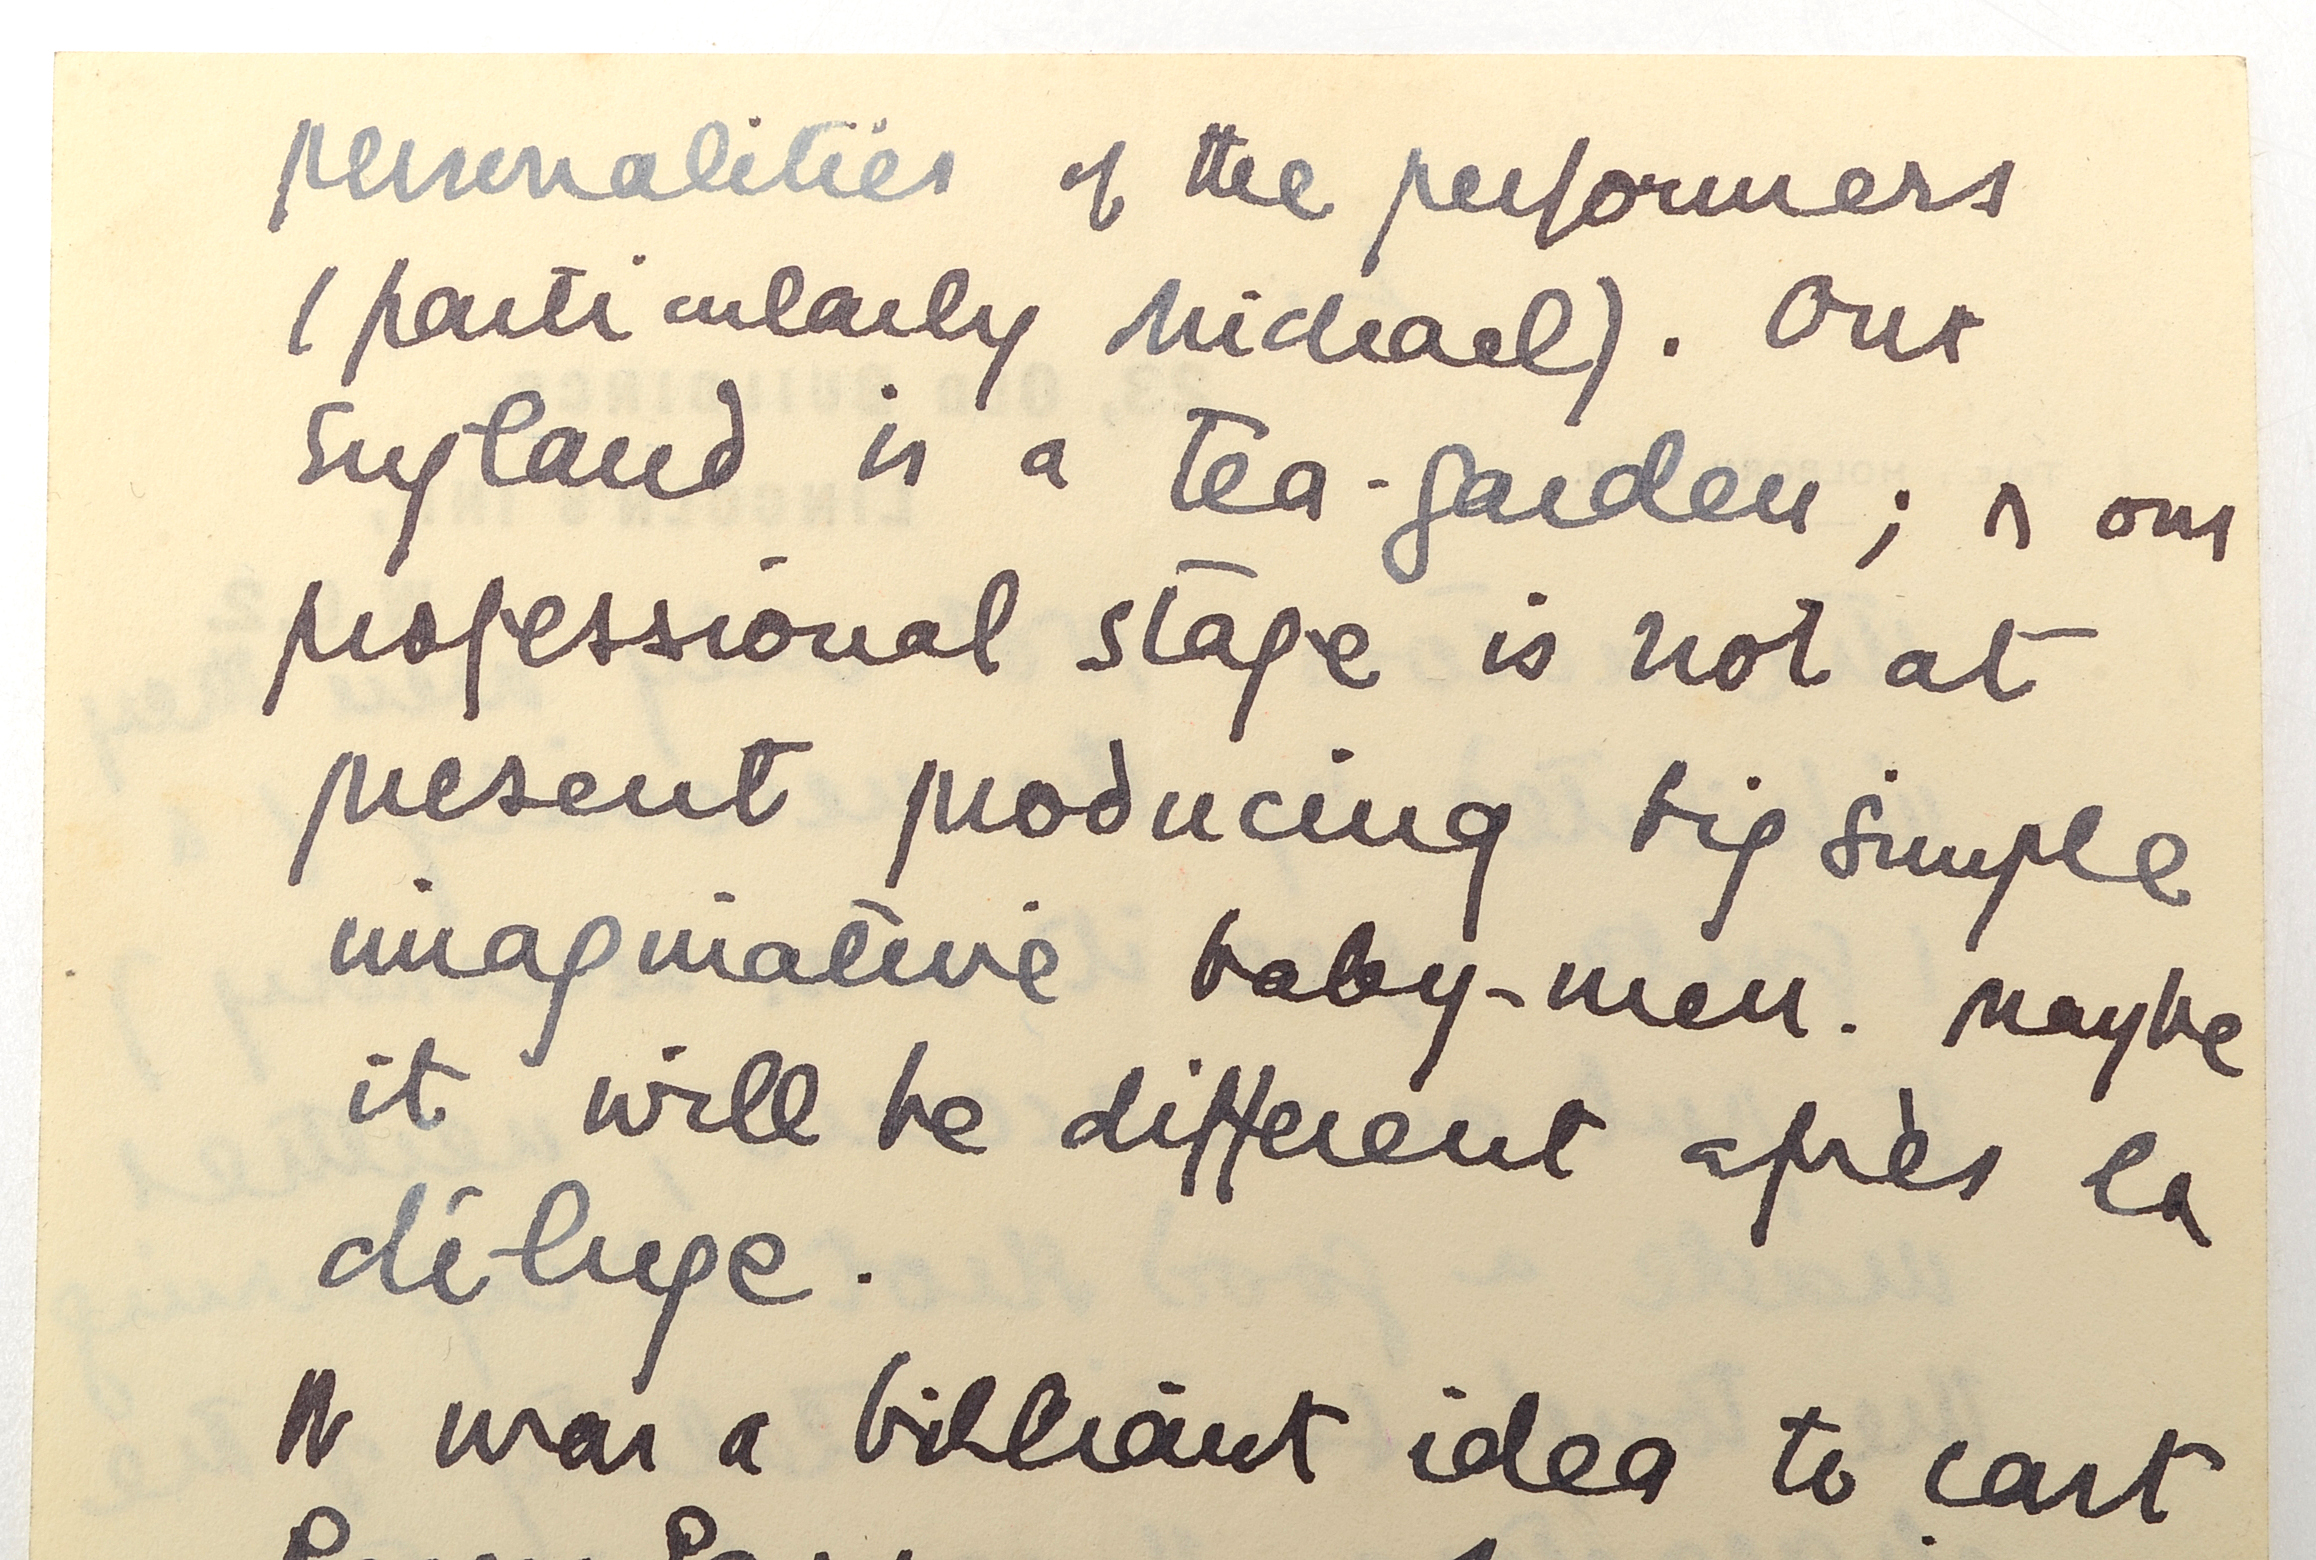 personalities of the performers
(particularly Michael). Our
England is a tea-garden; & our
professional stage is not at
present producing big simple
imaginative baby-men. Maybe
it will be different après la
déluge.
It was a brilliant idea to cast